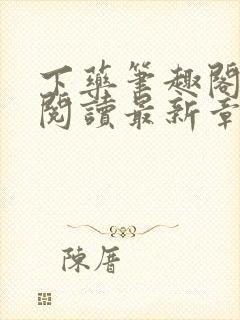 下藥筆趣閣
閱讀最新章
陳厝